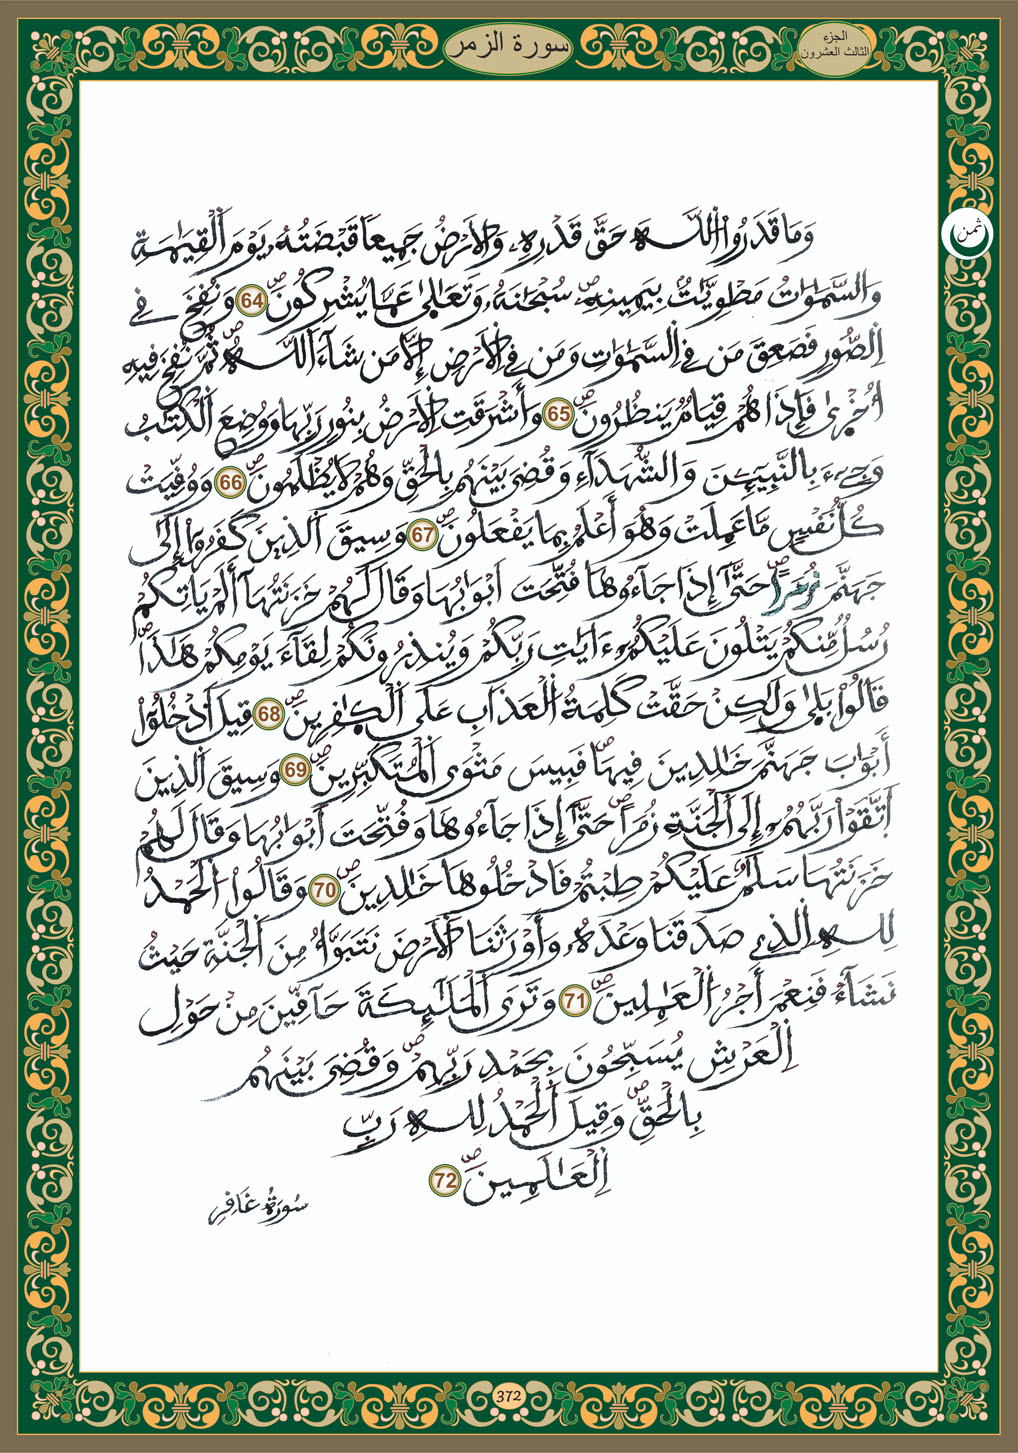 سورة الزمر
الجزء
الثالث العشرون
ثمن
وَمَا قَدَرُوا اللَّهَ حَقَّ قَدْرِهِ وَالْأَرْضُ جَمِيعاً قَبْضَتُهُ يَوْمَ الْقِيَٰمَةِ
وَالسَّمَٰوَٰتُ مَطْوِيَّٰتٌ بِيَمِينِهِ صۖ سُبْحَٰنَهُ وَتَعَٰلَىٰ عَمَّا يُشْرِكُونَ ص 64 وَنُفِخَ فِي
الصُّورِ فَصَعِقَ مَن فِي السَّمَٰوَٰتِ وَمَن فِي الْأَرْضِ إِلَّا مَن شَآءَ اللَّهُ ص ثُمَّ نُفِخَ فِيهِ
أُخْرَىٰ فَإِذَا هُمْ قِيَامٌ يَنظُرُونَ ص 65 وَأَشْرَقَتِ الْأَرْضُ بِنُورِ رَبِّهَا وَوُضِعَ الْكِتَٰبُ
وَجِيءَ بِالنَّبِيٓـِٕينَ وَالشُّهَدَآءِ وَقُضِيَ بَيْنَهُم بِالْحَقِّ وَهُمْ لَا يُظْلَمُونَ ص 66 وَوُفِّيَتْ
كُلُّ نَفْسٍ مَّا عَمِلَتْ وَهُوَ أَعْلَمُ بِمَا يَفْعَلُونَ ص 67 وَسِيقَ الَّذِينَ كَفَرُوٓا إِلَىٰ
جَهَنَّمَ زُمَراً ص حَتَّىٰٓ إِذَا جَآءُوهَا فُتِّحَتْ أَبْوَٰبُهَا وَقَالَ لَهُمْ خَزَنَتُهَآ أَلَمْ يَاتِكُمْ
رُسُلٌ مِّنكُمْ يَتْلُونَ عَلَيْكُمْ ءَايَٰتِ رَبِّكُمْ وَيُنذِرُونَكُمْ لِقَآءَ يَوْمِكُمْ هَٰذَا ص
قَالُوا بَلَىٰ وَلَٰكِنْ حَقَّتْ كَلِمَةُ الْعَذَابِ عَلَى الْكَٰفِرِينَ ص 68 قِيلَ ادْخُلُوٓا
أَبْوَٰبَ جَهَنَّمَ خَٰلِدِينَ فِيهَا ص فَبِيسَ مَثْوَى الْمُتَكَبِّرِينَ ص 69 وَسِيقَ الَّذِينَ
اتَّقَوْا رَبَّهُمْ إِلَى الْجَنَّةِ زُمَراً ص حَتَّىٰٓ إِذَا جَآءُوهَا وَفُتِّحَتْ أَبْوَٰبُهَا وَقَالَ لَهُمْ
خَزَنَتُهَا سَلَٰمٌ عَلَيْكُمْ طِبْتُمْ فَادْخُلُوهَا خَٰلِدِينَ ص 70 وَقَالُوا الْحَمْدُ
لِلهِ الَّذِي صَدَقَنَا وَعْدَهُ وَأَوْرَثَنَا الْأَرْضَ نَتَبَوَّأُ مِنَ الْجَنَّةِ حَيْثُ
نَشَآءُ ص فَنِعْمَ أَجْرُ الْعَٰمِلِينَ ص 71 وَتَرَى الْمَلَٰٓئِكَةَ حَآفِّينَ مِنْ حَوْلِ
الْعَرْشِ يُسَبِّحُونَ بِحَمْدِ رَبِّهِمْ ص وَقُضِيَ بَيْنَهُم
بِالْحَقِّ ص وَقِيلَ الْحَمْدُ لِلهِ رَبِّ
الْعَٰلَمِينَ ص 72
سُورَةُ غَافِرٍ
372